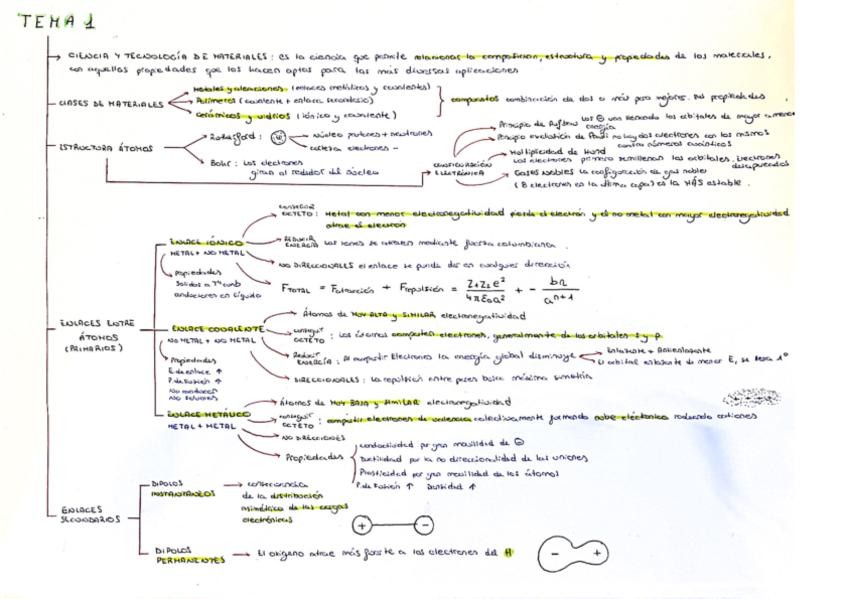 TEMA 1
CIENCIA Y TECNOLOGÍA DE MATERIALES: es la ciencia que permite relacionar la composicion, estructura y propiedades de los materiales,
con aquellas propiedades que los hacen aptos para las mas diversas aplicaciones
CLASES DE MATERIALES
Metales y aleaciones (enlaces metálicos y covalentes)
Polímeros (covalente + enlace secundario)
Cerámicos y vidrios (iónico y covalente)
compuestos combinación de dos o más para mejorar propiedades
ESTRUCTURA ÁTOMOS
Rutherford:
núcleo protones + neutrones
corteza electrones -
Bohr: los electrones
giran al rededor del núcleo
CONFIGURACIÓN
ELECTRÓNICA
Principio de Aufbau los orbitales de mayor a menor
energía
Principio exclusión de Pauli no hay dos electrones con los mismos
cuatro números cuánticos
Multiplicidad de Hund
los electrones primero rellenan los orbitales, electrones
desapareados
Gases Nobles la configuración de gas noble
(8 electrones en la última capa) es la MÁS estable.
ENLACES ENTRE
ÁTOMOS
(PRIMARIOS)
ENLACE IÓNICO
METAL + NO METAL
Propiedades
Solidos a Tª amb
conductores en líquido
CONSEGUIR
OCTETO: Metal con menor electronegatividad pierde el electrón y el no metal con mayor electronegatividad
atrae el electron
REDUCIR
ENERGÍA los iones se atraen mediante fuerza coulombiana.
NO DIRECCIONALES el enlace se puede dar en cualquier dirección
F TOTAL = Fatracción + Frepulsión = Z1Z2e² / 4πε0a² + - bn / a^(n+1)
ENLACE COVALENTE
NO METAL + NO METAL
Propiedades
E. de enlace ↑
P. de fusión ↑
No conducen
No solubles
Átomos de MUY ALTA y SIMILAR electronegatividad
conseguir
OCTETO: Los átomos comparten electrones, generalmente de los orbitales s y p.
Reducir
ENERGÍA: Al compartir Electrones la energía global disminuye
Enlazante + Antienlazante
El orbital enlazante de menor E, se llena 1º
DIRECCIONALES: La repulsión entre pares busca máxima simetría
ENLACE METÁLICO
METAL + METAL
Átomos de MUY BAJA y SIMILAR electronegatividad
conseguir
OCTETO: compartir electrones de valencia colectivamente formando nube electrónica rodeando cationes
NO DIRECCIONES
Propiedades
conductividad por gran movilidad de ⊖
Ductilidad por la no direccionalidad de las uniones
Plasticidad por gran movilidad de los átomos
P. de fusión ↑ Densidad ↑
ENLACES
SECUNDARIOS
DIPOLOS
INSTANTÁNEOS
consecuencia
de la distribución
asimétrica de las cargas
electrónicas
+ -
DIPOLOS
PERMANENTES
El oxigeno atrae más fuerte a los electrones del H
- +